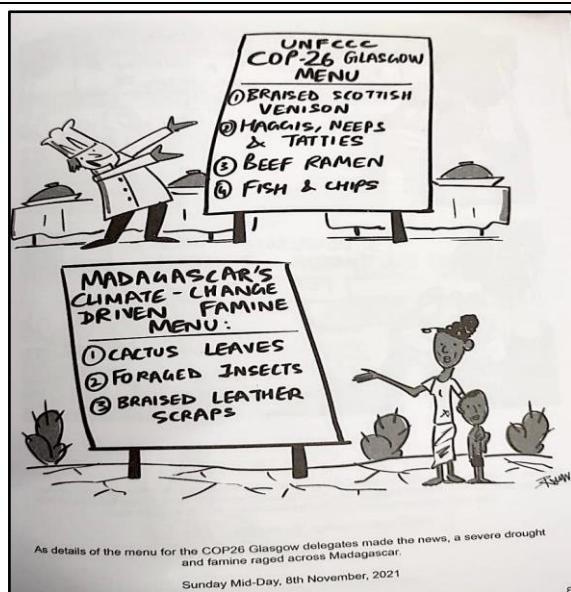 UNFCCC
COP-26 GLASGOW
MENU
① BRAISED SCOTTISH
VENISON
② HAGGIS, NEEPS
& TATTIES
③ BEEF RAMEN
④ FISH & CHIPS
MADAGASCAR'S
CLIMATE-CHANGE
DRIVEN FAMINE
MENU:
① CACTUS LEAVES
② FORAGED INSECTS
③ BRAISED LEATHER
SCRAPS
As details of the menu for the COP26 Glasgow delegates made the news, a severe drought
and famine raged across Madagascar.
Sunday Mid-Day, 8th November, 2021